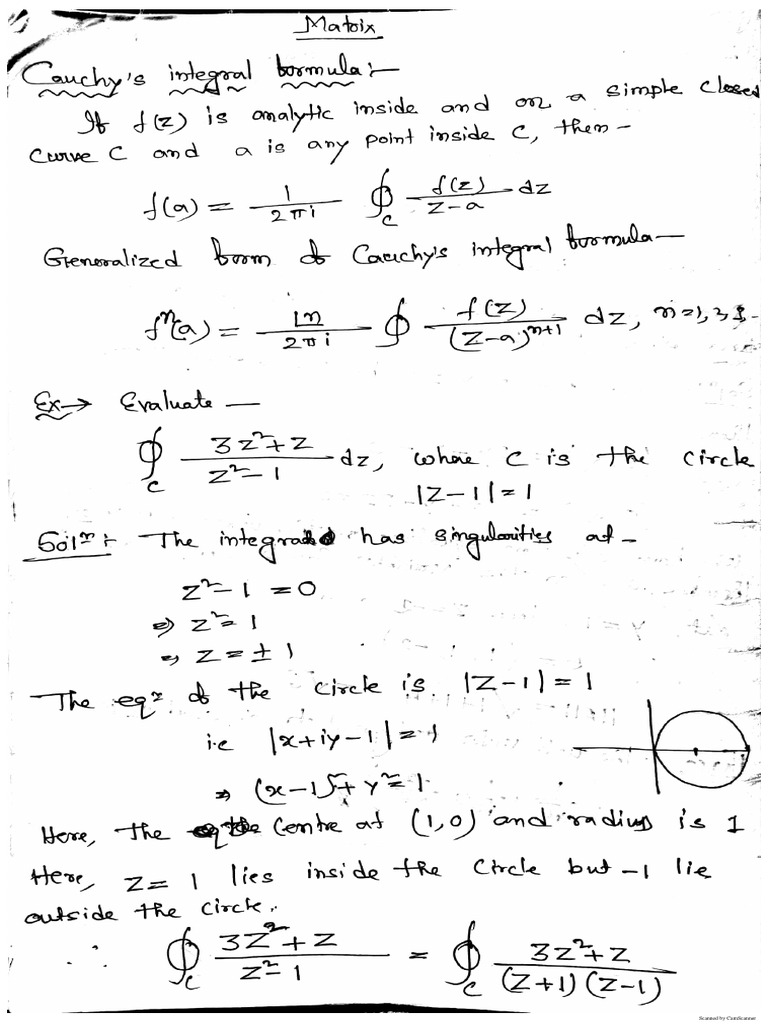 Matrix
Cauchy's integral formula:-
If f(z) is analytic inside and on a simple closed
curve C and a is any point inside C, then -
f(a) = 1/2πi ∮_C f(z)/z-a dz
Generalized form of Cauchy's integral formula -
fⁿ(a) = |n/2πi ∮ f(z)/(z-a)ⁿ⁺¹ dz, n=1,2,3,-
Ex→ Evaluate —
∮_C 3z²+z/z²-1 dz, where C is the circle
|z-1|=1
Solⁿ: The integrand has singularities at -
z²-1 = 0
⇒ z²=1
⇒ z = ±1
The eqⁿ of the circle is |z-1| = 1
i.e |x+iy-1| = 1
⇒ (x-1)²+y²=1
Here, the centre at (1,0) and radius is 1
Here, z= 1 lies inside the circle but -1 lie
outside the circle.
∴ ∮_C 3z²+z/z²-1 = ∮_C 3z²+z/(z+1)(z-1)
Scanned by CamScanner